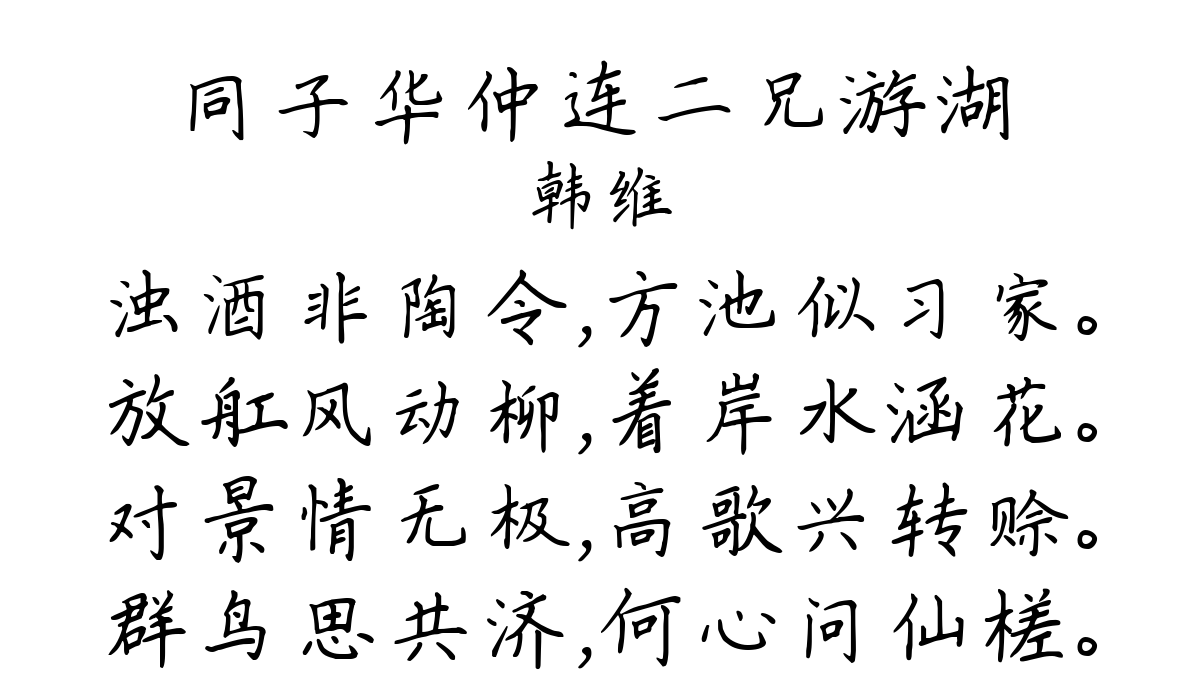 同子华仲连二兄游湖
韩维
浊酒非陶令,方池似习家。
放舡风动柳,着岸水涵花。
对景情无极,高歌兴转赊。
群鸟思共济,何心问仙槎。